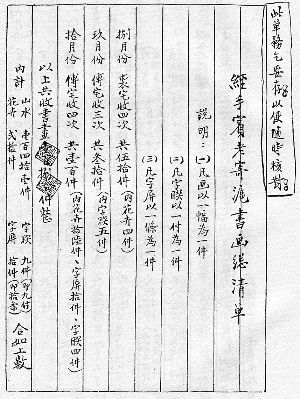 此單務乞妥存以便随时核对
經手賓老寄滬書画總清单
説明：（一）凡画以一幅為一件
（二）凡字聯以一付為一件
（三）凡字屏以一條為一件
捌月份 裴宅收四次 共伍拾件（內花卉四件）
玖月份 傅宅收三次 共叁拾件（內字联五件）
拾月份 傅宅收四次 共壹百件（內花卉拾陸件、字屏拾件、字联四件）
以上共收書畫 捌拾件整
內計 山水 壹百四拾壹件 字联 九件（即九付）
花卉 弍拾件 字屏 拾件（即拾条） 合如上数